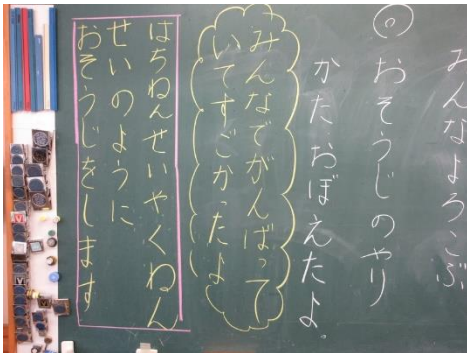 みんなよろこぶ
◎おそうじのやり
かた、おぼえたよ。
みんなでがんばって
いてすごかったよ
はちねんせいやくねん
せいのように
おそうじをします